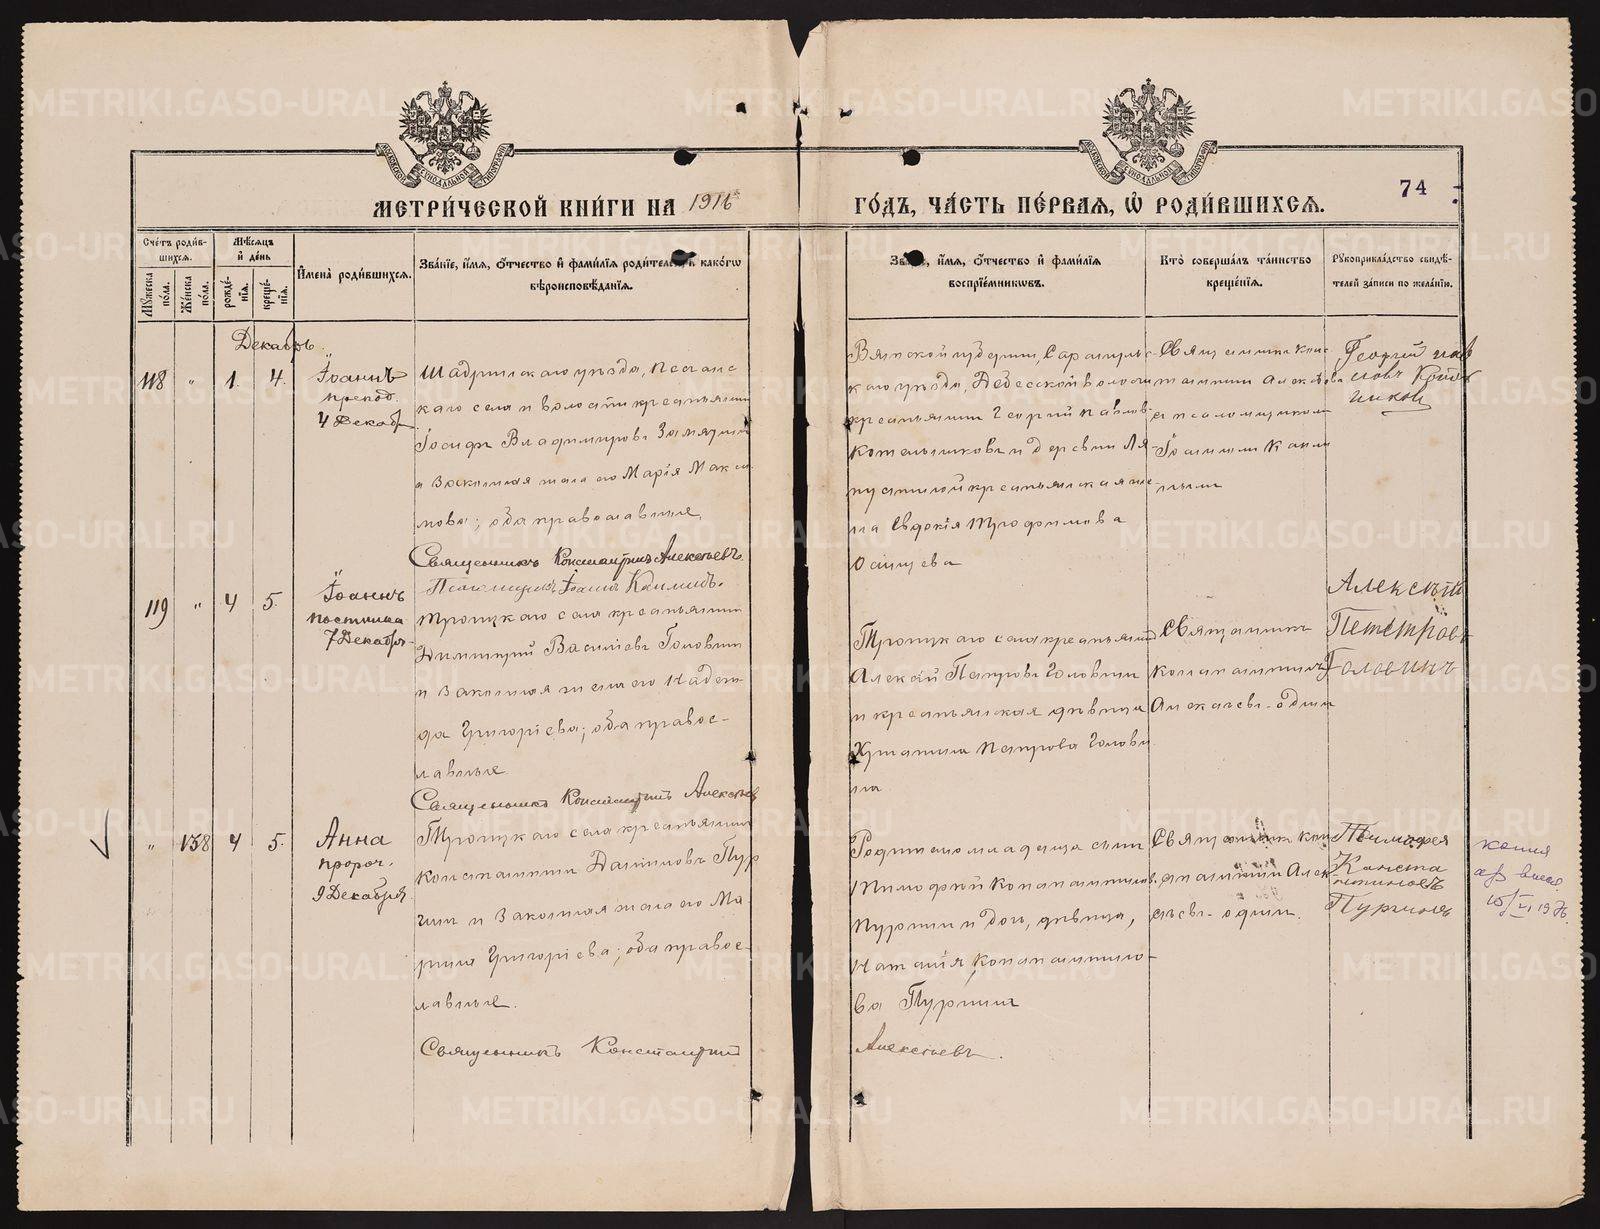 74
МЕТРИ́ЧЕСКОЙ КНИ́ГИ НА 1916 ГО́ДЪ, ЧА́СТЬ ПЕ́РВАЯ, Ѽ РОДИ́ВШИХСЯ.
Сче́тъ роди́в-
шихся.
Мѣ́сяцъ
и де́нь
Му́жеска
по́ла.
Же́нска
по́ла.
рожде́-
нїя.
креще́-
нїя.
И́мена̀ роди́вшихся.
Зва́нїе, и́мя, ѻ́тчество и фами́лїя роди́телей какогѡ
вѣроисповѣ́данїя.
Зва́нїе, и́мя, ѻ́тчество и фами́лїя
воспрїе́мниковъ.
Кто̀ соверша́лъ та́инство
креще́нїя.
Рукоприкла́дство свидѣ́-
телей за́писи по жела́нїю.
Декабрь.
118 " 1. 4.
Іоаннъ
препод.
4 Декабр
Шадринскаго уѣзда, Песчанс
каго села и волости крестьянин
Іосифъ Владимировъ Замятин
и законная жена его Марія Макси
мова; оба православные.
Священникъ Константинъ Алексѣевъ.
Псаломщикъ Іоаннъ
Вятской губерніи, Сарапульс-
каго уѣзда, Дебесской волости
крестьянинъ Георгій Павлов
Котельниковъ и деревни
крестьянская же-
на Евдокія Трофимова
Священникъ Конс-
тантинъ Алексѣевъ
и псаломщикомъ
Іоанномъ
Георгій Пав
ловъ Котель
никовъ
119 " 4 5.
Іоаннъ
постника
7 Декабря
Троицкаго села крестьянин
Димитрій Василіевъ Головин
и законная жена его Надеж-
да Григоріева; оба правос-
лавные
Священникъ Константинъ Алексѣев
Троицкаго села крестьянин
Алексѣй Петровъ Головин
и крестьянская дѣвица
Христина Петрова Голови
на
Священникъ
Константинъ
Алексѣевъ-один
Алексѣй
Пететровъ
Головинъ
" 138 4 5.
Анна
пророч.
9 Декабря
Троицкаго села крестьянин
Константинъ Данииловъ Пур
гин и законная жена его Ма
рина Григоріева; оба правос-
лавные.
Священникъ Константинъ
Родители младенца сын
Тимофей Константинов
Пургин и доч, дѣвица,
Наталія Константино-
ва Пургина
Алексѣевъ.
Священник Кон
стантинъ Алек
сѣевъ-один.
Тимофея
Канста
нтиновъ
Пургинъ
копия